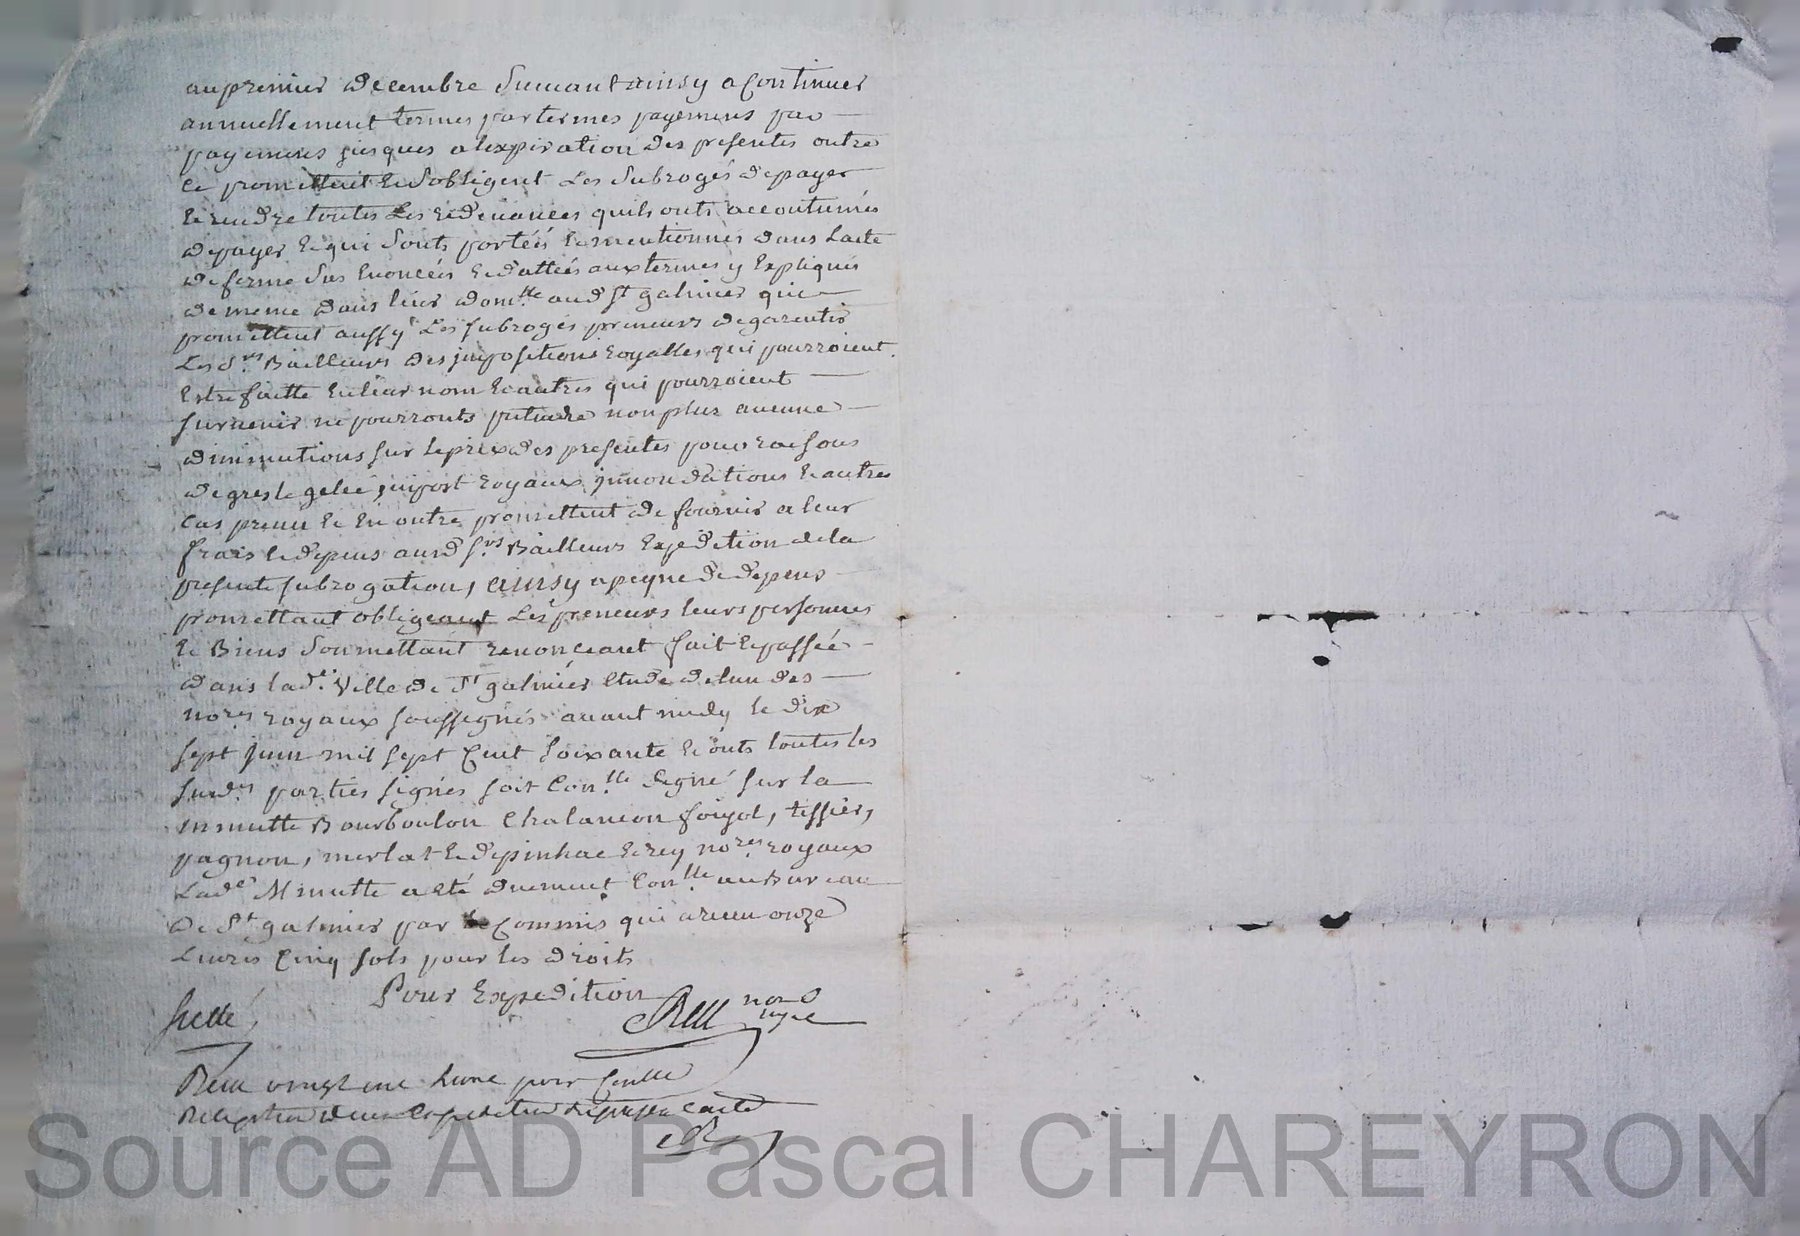 au premier decembre Suivant ainsy a Continuer
annuellement termes par termes payemens par
payemens jusques a lexpiration des presentes outre
Ce promettent Et Sobligent Les Subrogés de payer
Et rendre toutes Les redevances quils onts accoutumés
de payer Et qui Sonts portéés Et mentionnés dans Lacte
de ferme Sus Enoncéés Et dattéés aux termes y Expliqués
de meme dans leur dom.lle aud St galmier que
promettent aussy Les subrogés preneurs de garentir
Les S.rs Bailleurs des impositions Royalles qui pourroient
Estre faitte En leur nom Et autres qui pourroient
survenir ne pourronts pretendre non plus aucune
diminutions sur le prix des presentes pour raisons
de gresle gelée, import royaux, innondations Et autres
Cas preveu Et En outre promettent de fournir a leur
frais Et depens ausd S.rs Bailleurs Expedition de la
presente subrogation, ainsy a peyne de depens
promettant obligeant Les preneurs leurs personnes
Et Biens Soumettant renonceant fait Et passéé
dans lad.e Ville de St galmier Etude de lun des
no.res royaux soussignés avant midy le dix
sept juin mil sept Cent soixante Et onts toutes les
susd.es parties signés soit Con.lle Signé sur la
minutte Bourboulon Chalancon foyol, tissier,
pagnon, merlat Et depinhac Et rey no.res royaux
Lad.e Minutte a eté duement Con.lle au Bureau
De St galmier par le Commis qui a receu onze
Livres Cinq sols pour les droits
Pour Expedition
Scellé
no.re
Receu vingt une livre pour
Source AD Pascal CHAREYRON